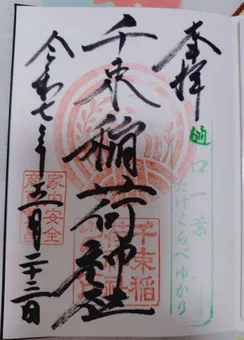 奉拝
樋口一葉
たけくらべゆかり
千束稲荷神社
千束稲
荷神社
家内安全
令和七年五月二十二日